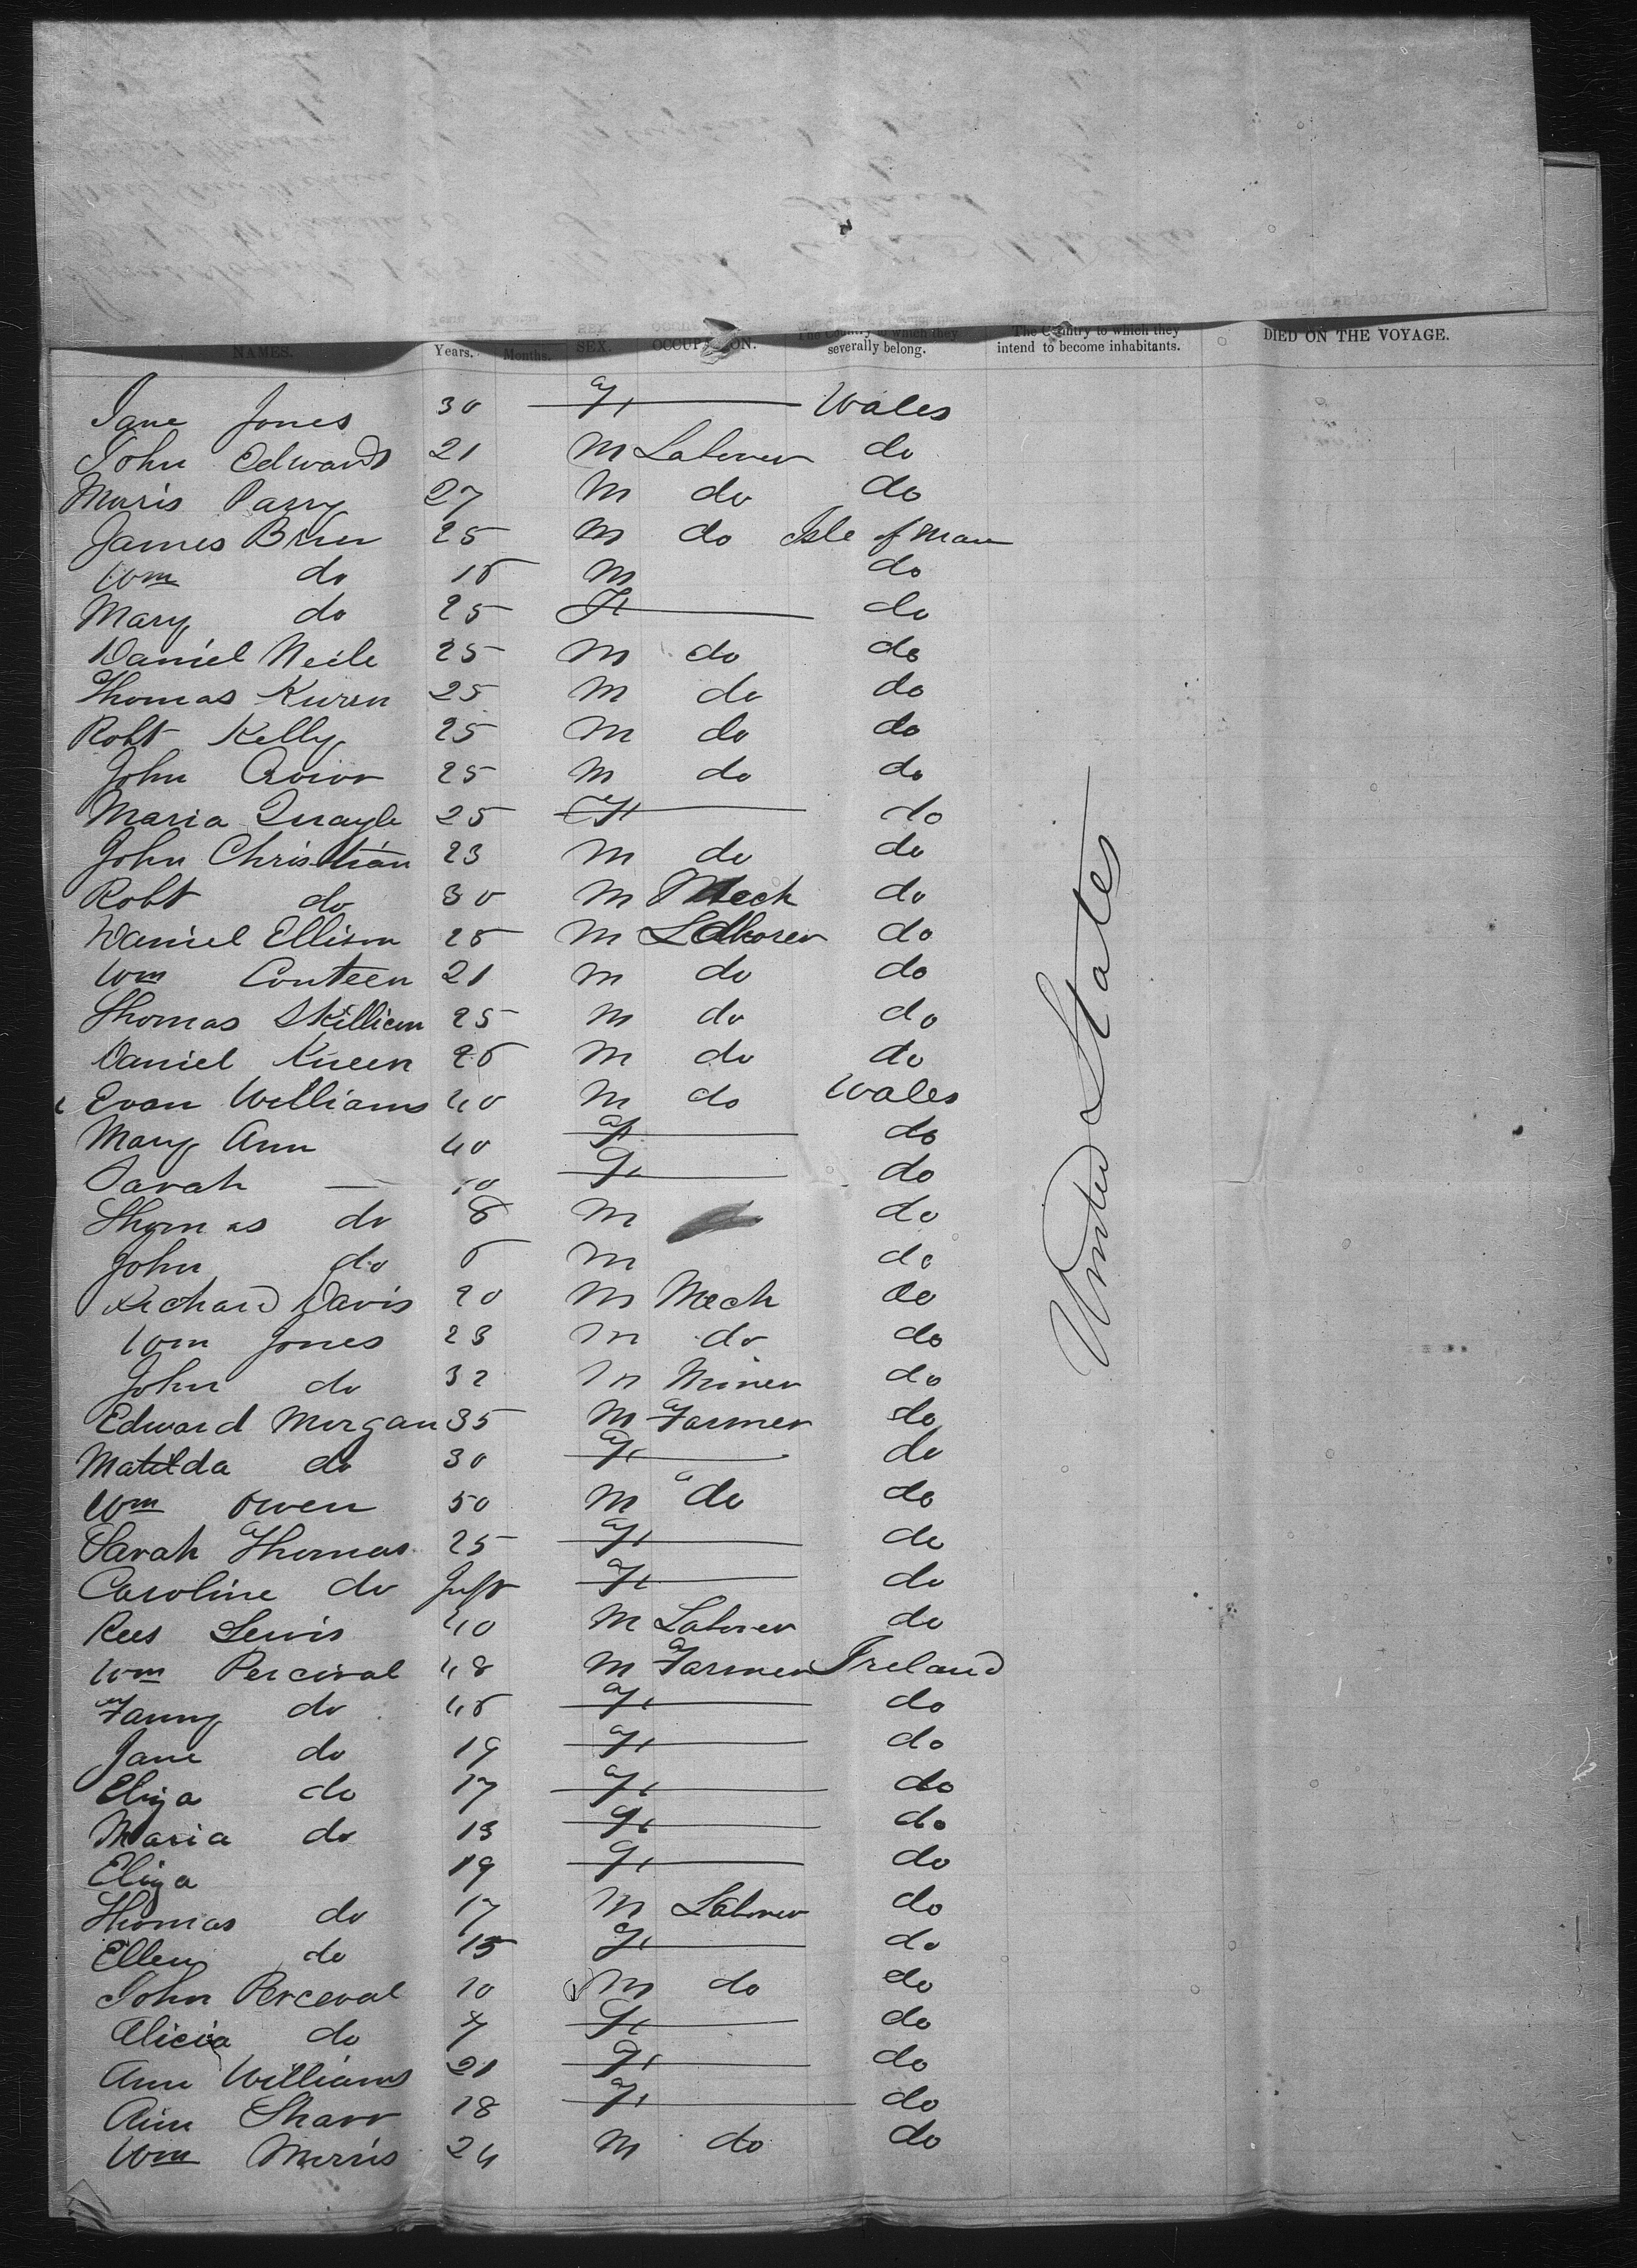 NAMES. Years. Months. SEX. OCCUPATION. The Country to which they severally belong. The Country to which they intend to become inhabitants. DIED ON THE VOYAGE.
Jane Jones 30 F Wales
John Edwards 21 M Laborer do
Morris Parry 27 M do do
James Brew 25 M do Isle of Man
Wm do 18 M do
Mary do 25 F do
Daniel Neile 25 M do do
Thomas 25 M do do
Robt Kelly 25 M do do
John 25 M do do
Maria Quayle 25 F do
John Christian 23 M do do
Robt do 30 M Mech do
Daniel Ellison 25 M Laborer do
Wm Conteen 21 M do do
Thomas Skillicon 25 M do do
Daniel Kueen 25 M do do
Evan Williams 40 M do Wales
Mary Ann 40 F do
Sarah — 10 F do
Thomas do 8 M do
John do 6 M do
Richard Davis 20 M Mech do
Wm Jones 23 M do do
John do 32 M Miner do
Edward Morgan 35 M Farmer do
Matilda do 30 F do
Wm Owen 50 M do do
Sarah Thomas 25 F do
Caroline do Inft F do
Rees Lewis 40 M Laborer do
Wm Percival 48 M Farmer Ireland
Fanny do 46 F do
Jane do 19 F do
Eliza do 17 F do
Maria do 13 F do
Eliza 19 F do
Thomas do 17 M Laborer do
Ellen do 15 F do
John Perceval 10 M do do
Alicia do 7 F do
Ann Williams 21 F do
Ann Sharr 18 F do
Wm Morris 24 M do do
United States